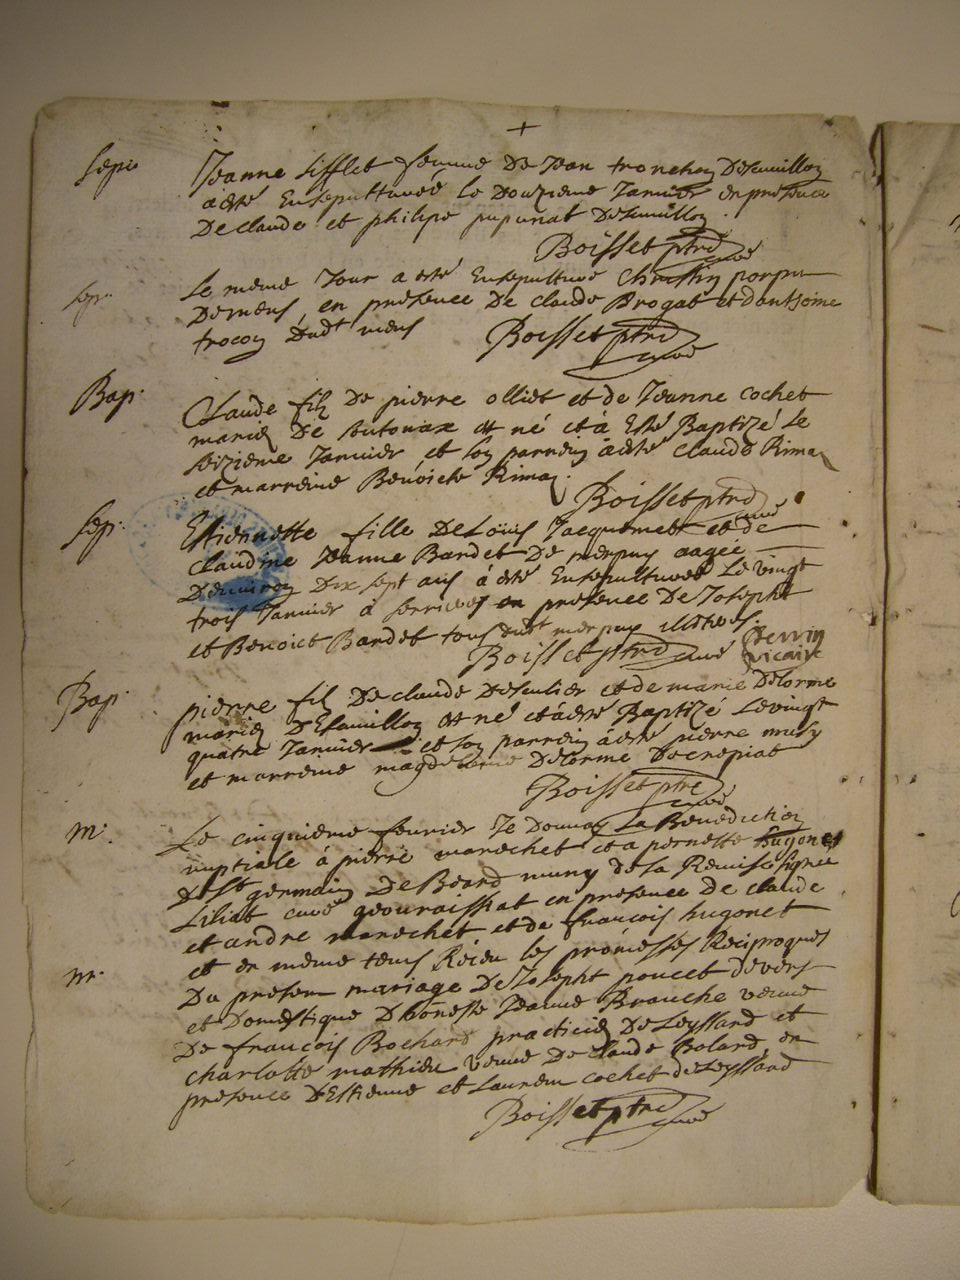 +
Sepre Jeanne Sifflet femme De Jean tronchon Desmillon
a esté Ensepulturéé le Douzieme Janvier en presence
De claude et philipe pupunat Desmillon.
Boisset ptre curé
Sep. Le meme Jour a esté Ensepulturé Christin
De mens en presence De claude Brogat et dantoine
trocon Dudt mens Boisset ptre curé
Bap. Claude filz De pierre olliet et de Jeanne cochet
mariez De soutonax est né et à Esté Baptizé le
seizieme Janvier et son parrein à esté claude Rimaz
et marreine Benoiete Rimaz.
Boisset ptre curé
Sep. Estiennette fille De Louis Jacquemet et de
claudine Jeanne Bardet De merpuis aagée
Denviron Dix sept ans à esté Ensepulturéé Le vingt
trois Janvier à serrieres en presence De Joseph
et Benoiet Bardet tous dudt merpuis
Boisset ptre curé perrin
vicaire
Bap. pierre filz De claude et de marie Delorme
mariez est né et à esté Baptizé Le vingt
quatre Janvier et son parrein à esté pierre musy
et marreine magdeleine Delorme De crepiat
Boisset ptre curé
m. Le cinquieme fevrier Je Donnay La Benediction
nuptiale à pierre marechet et a pernette hugonet
de St germain De Beard muny de la Remise signee
Liliat curé geouraissiat en presence de claude
et andre marechet et de francois hugonet
m. et en meme tems Receu les promesses Reciproques
Du present mariage De Joseph poncet de vers
et Domestique Dhoneste Jeanne Branche veuve
De francois Bochard practicien De Leyssard et
charlotte mathieu veuve De claude Bolard en
presence D'Estienne et Laurent cochet de Leyssard
Boisset ptre curé